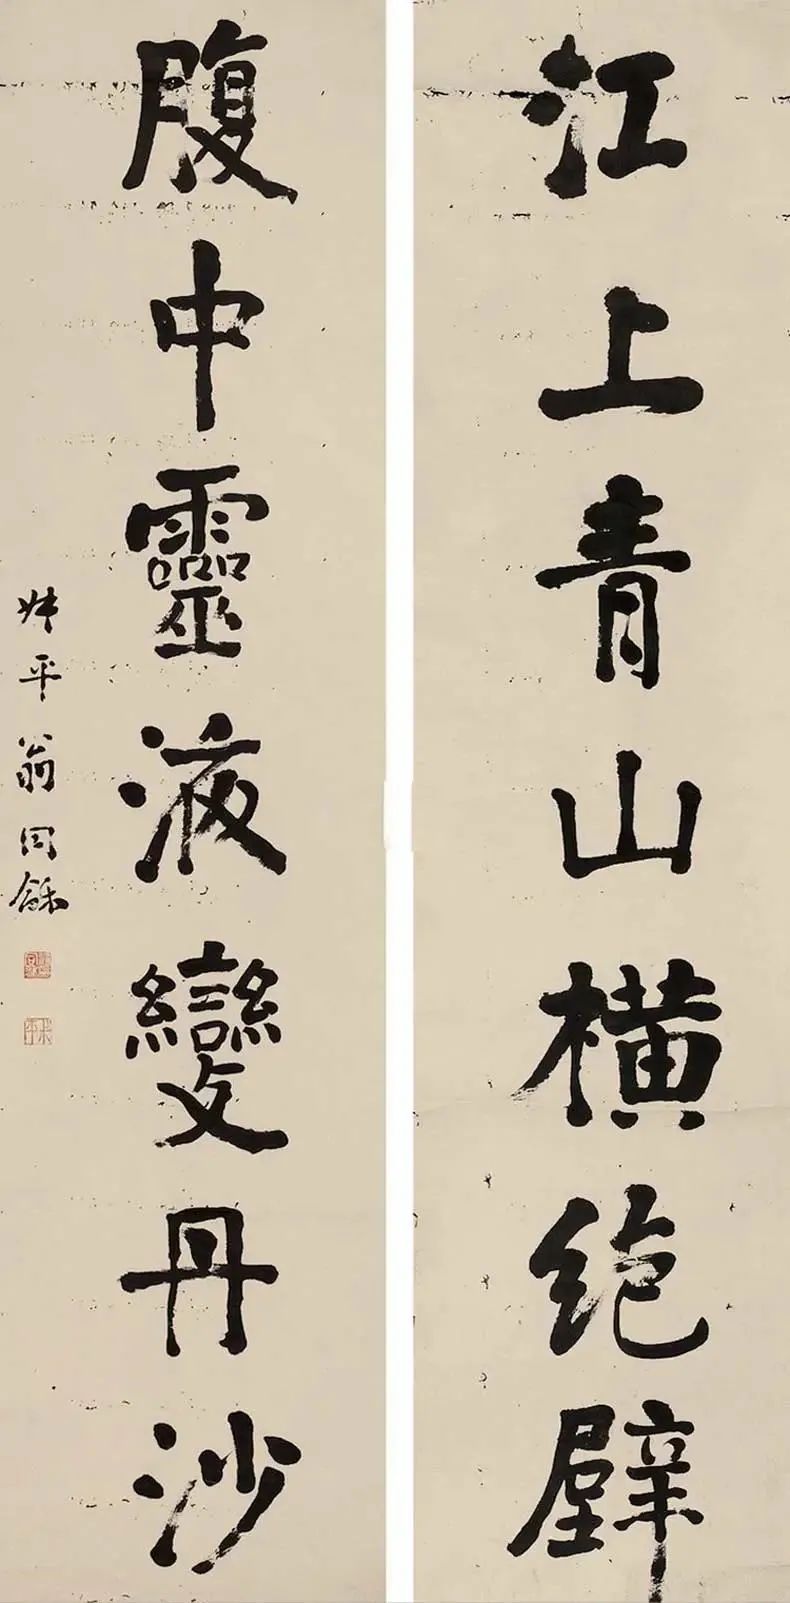 江上青山橫絕壁
腹中靈液變丹沙
叔平翁同龢